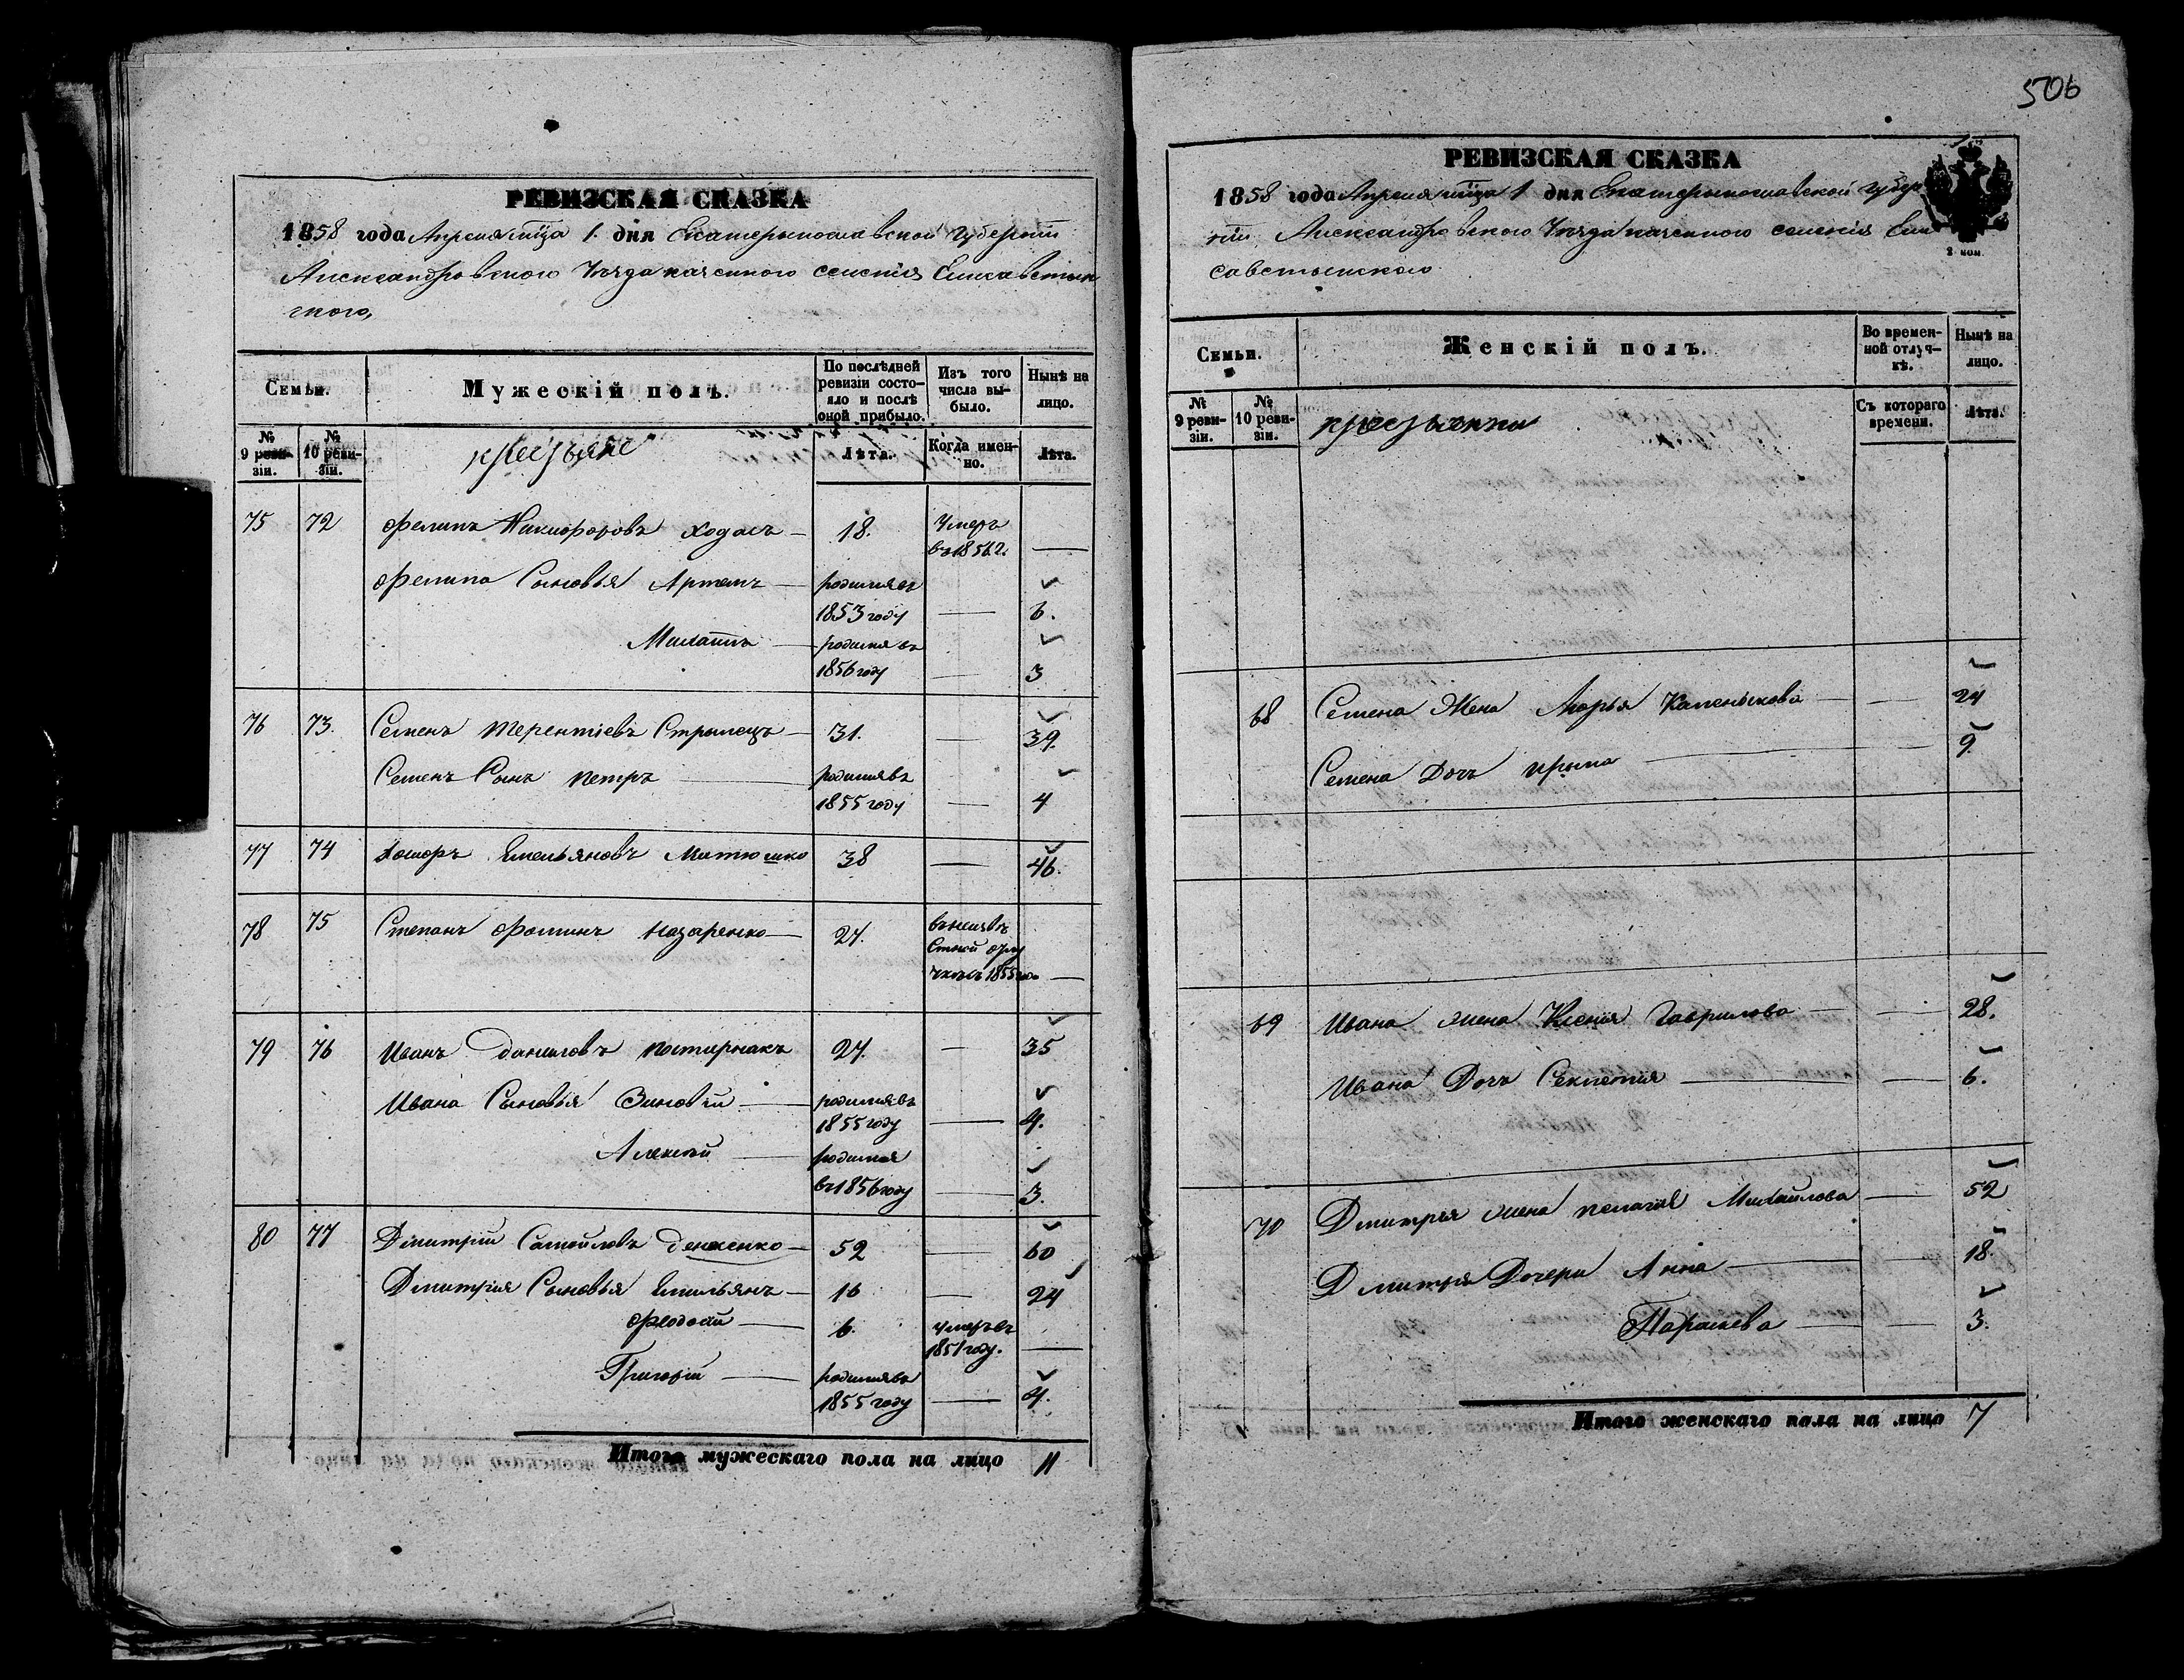 РЕВИЗСКАЯ СКАЗКА
1858 года Апреля мца 1. дня Екатерыпославской Губерніи
Александровского Уезда казенного селенія Елисаветын
ского,
Семьи.
Мужескій полъ.
По послѣдней
ревизіи состо-
яло и послѣ
оной прибыло.
Изъ того
числа вы-
было.
Нынѣ на
лицо.
№
9 реви-
зіи.
№
10 реви-
зіи.
крестьяне
Лѣта.
Когда имен-
но.
Лѣта.
75 72 Филипъ Никифоровъ Ходасъ 18. Умеръ
въ 1856 г.
Филипа Сыновья Артемъ родился въ
1853 году 6.
Михаилъ родился въ
1856 году 3
76 73. Семенъ Терентіевъ Стрылецъ 31. 39.
Семенъ Сынъ Петръ родился въ
1855 году 4
77 74 Емельяновъ Матюшко 38 46.
78 75 Степанъ Фоминъ Назаренко 27.
1855
79 76 Иванъ Даниловъ Пастернакъ 27. 35
Ивана Сыновья Зиновій родился въ
1855 году 4.
Алексѣй родился
въ 1856 году 3.
80 77 Дмитрій Самойловъ Денженко 52 60
Дмитрія Сыновья Емильянъ 16 24
Федосій 6. умеръ въ
1851 году.
Григорій родился въ
1855 году 4.
Итого мужескаго пола на лицо 11
506
РЕВИЗСКАЯ СКАЗКА
1858 года Апреля мца 1 дня Екатерыпославской Губер
ніи Александровского Уезда казенного селенія Ели
саветынского
2 коп.
Семьи.
Женскій полъ.
Во времен-
ной отлуч-
кѣ.
Нынѣ на
лицо.
№
9 реви-
зіи.
№
10 реви-
зіи.
крестьянки
Съ котораго
времени.
Лѣта.
68 Семена Жена Марья Каленыкова 24
Семена Дочь Ирына 9.
69 Ивана жена Ксенія Гаврилова 28.
Ивана Дочь Секлетія 6.
70 Дмитрія жена Пелагія Михайлова 52
Дмитрія Дочери Анна 18.
Параскева 3.
Итого женскаго пола на лицо 7